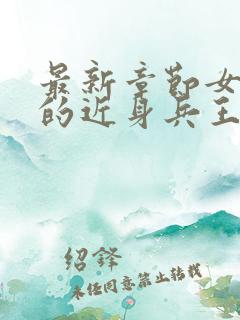 最新章节女
的近身兵王
绍铎
未经同意禁止转载